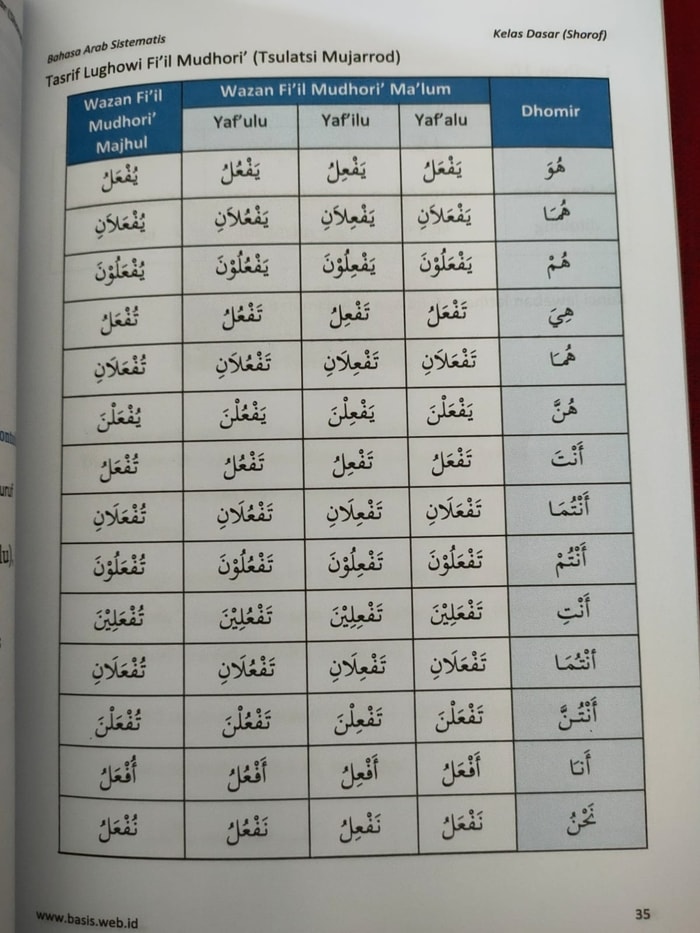 Bahasa Arab Sistematis
Kelas Dasar (Shorof)
Tasrif Lughowi Fi'il Mudhori' (Tsulatsi Mujarrod)
Wazan Fi'il Mudhori' Majhul Wazan Fi'il Mudhori' Ma'lum Dhomir
Yaf'ulu Yaf'ilu Yaf'alu
هُوَ يَفْعَلُ يَفْعِلُ يَفْعُلُ يُفْعَلُ
هُمَا يَفْعَلاَنِ يَفْعِلاَنِ يَفْعُلاَنِ يُفْعَلاَنِ
هُمْ يَفْعَلُوْنَ يَفْعِلُوْنَ يَفْعُلُوْنَ يُفْعَلُوْنَ
هِيَ تَفْعَلُ تَفْعِلُ تَفْعُلُ تُفْعَلُ
هُمَا تَفْعَلاَنِ تَفْعِلاَنِ تَفْعُلاَنِ تُفْعَلاَنِ
هُنَّ يَفْعَلْنَ يَفْعِلْنَ يَفْعُلْنَ يُفْعَلْنَ
أَنْتَ تَفْعَلُ تَفْعِلُ تَفْعُلُ تُفْعَلُ
أَنْتُمَا تَفْعَلَانِ تَفْعِلَانِ تَفْعُلَانِ تُفْعَلَانِ
أَنْتُمْ تَفْعَلُوْنَ تَفْعِلُوْنَ تَفْعُلُوْنَ تُفْعَلُوْنَ
أَنْتِ تَفْعَلِيْنَ تَفْعِلِيْنَ تَفْعُلِيْنَ تُفْعَلِيْنَ
أَنْتُمَا تَفْعَلَانِ تَفْعِلَانِ تَفْعُلَانِ تُفْعَلَانِ
أَنْتُنَّ تَفْعَلْنَ تَفْعِلْنَ تَفْعُلْنَ تُفْعَلْنَ
أَنَا أَفْعَلُ أَفْعِلُ أَفْعُلُ أُفْعَلُ
نَحْنُ نَفْعَلُ نَفْعِلُ نَفْعُلُ نُفْعَلُ
www.basis.web.id
35